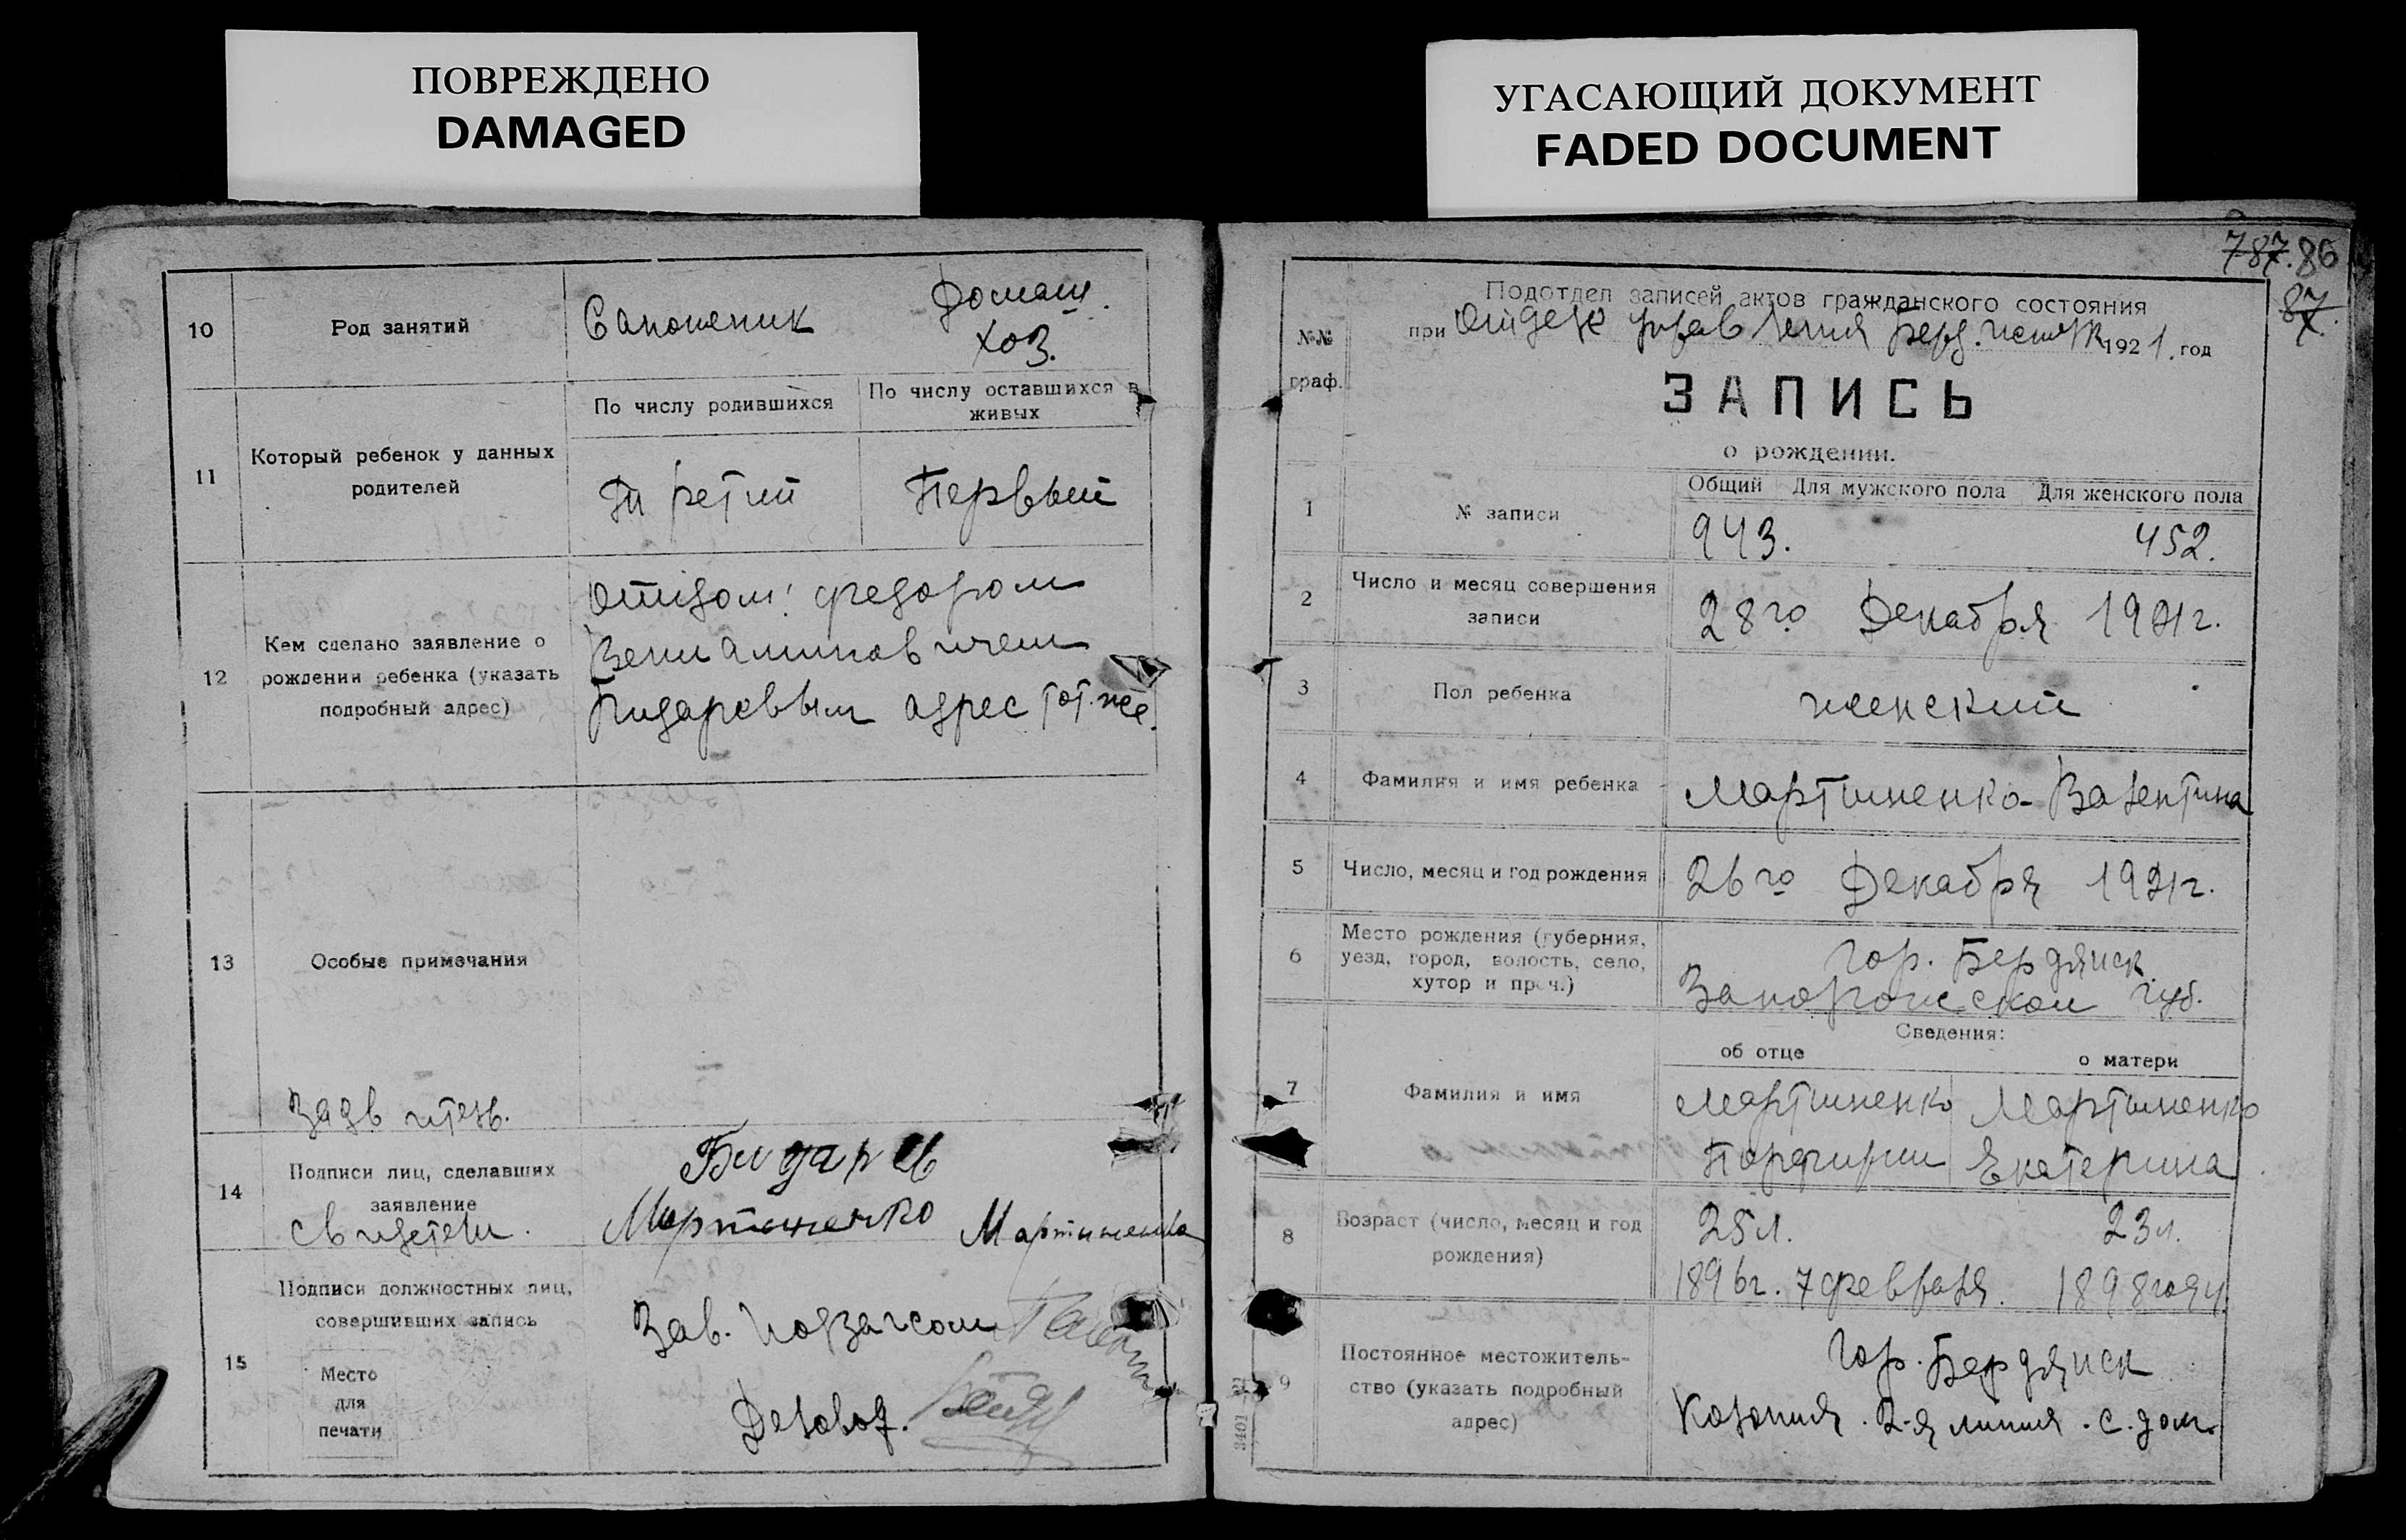 ПОВРЕЖДЕНО
DAMAGED
УГАСАЮЩИЙ ДОКУМЕНТ
FADED DOCUMENT
10
Род занятий
Сапожник
Домаш.
хоз.
11
Который ребенок у данных
родителей
По числу родившихся
По числу оставшихся в
живых
Третий
Первый
12
Кем сделано заявление о
рождении ребенка (указать
подробный адрес)
Федором
Вениаминовичем
адрес тот-же.
13
Особые примечания
14
Подписи лиц, сделавших
заявление
Свидетели.
Мартиненко Мартиненко
15
Подписи должностных лиц,
совершивших запись
Место
для
печати
Зав. Подзагсом
Делов.
787.86
87
№№
граф.
Подотдел записей актов гражданского состояния
при Отделе управления Берд. 1921. год
ЗАПИСЬ
о рождении.
1
№ записи
Общий Для мужского пола Для женского пола
943. 452.
2
Число и месяц совершения
записи
28го Декабря 1921г.
3
Пол ребенка
женский
4
Фамилия и имя ребенка
Мартиненко Валентина
5
Число, месяц и год рождения
26го Декабря 1921г.
6
Место рождения (губерния,
уезд, город, волость, село,
хутор и проч.)
гор. Бердянск
Запорожской губ.
Сведения:
об отце
о матери
7
Фамилия и имя
Мартиненко
Порфирий
Мартиненко
Екатерина
8
Возраст (число, месяц и год
рождения)
25л.
1896г. 7 февраля.
23л.
1898 году
9
Постоянное местожитель-
ство (указать подробный
адрес)
гор. Бердянск
Колония. 2-я линия. с. дом.
3401